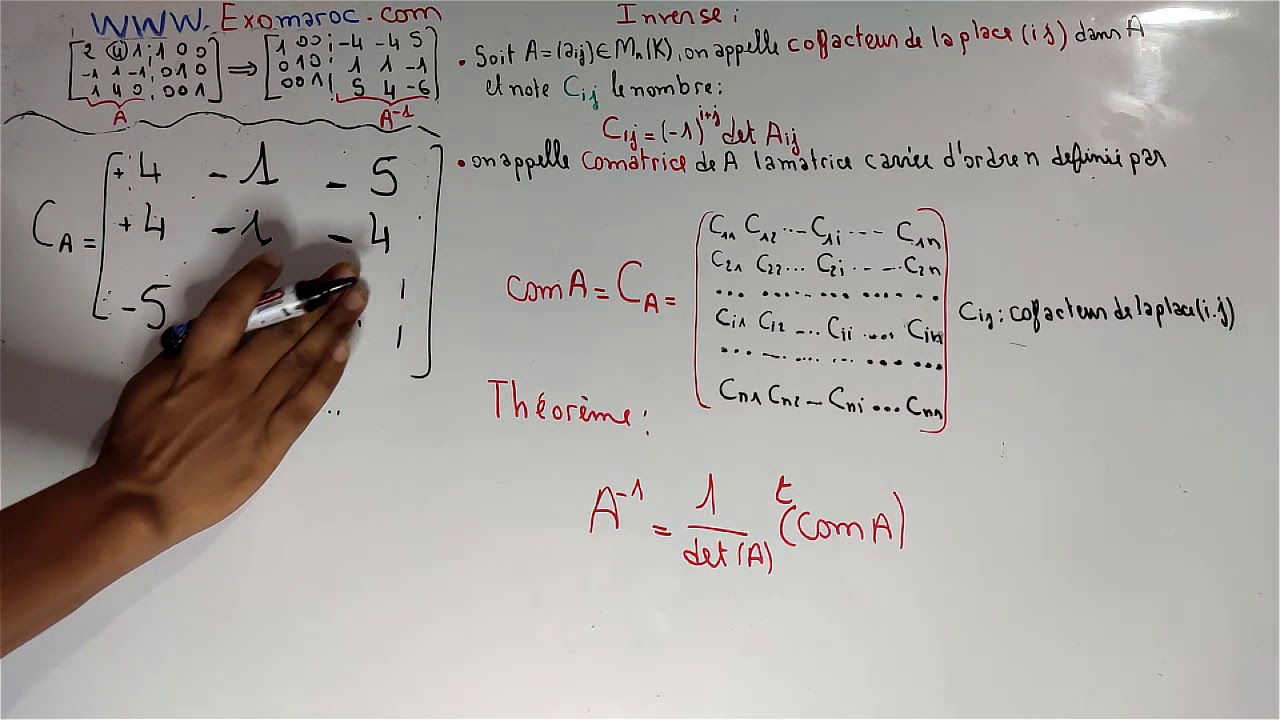 WWW.Exomaroc.com
[2 4 1 ¦ 1 0 0
-1 1 -1 ¦ 0 1 0
1 4 0 ¦ 0 0 1]
A
⇒
[1 0 0 ¦ -4 -4 5
0 1 0 ¦ 1 1 -1
0 0 1 ¦ 5 4 -6]
A⁻¹
C_A = [+4 -1 -5
+4 -1 -4
-5
Inverse :
• Soit A=(aij)∈Mn(K), on appelle cofacteur de la place (i j) dans A
et note Cij le nombre :
Cij = (-1)^i+j det Aij
• on appelle Comatrice de A la matrice carrée d'ordre n definié par
com A = C_A =
C11 C12 ... C1i ... C1n
C21 C22 ... C2i ... C2n
... ... ... ... ...
Ci1 Ci2 ... Cii .... Cin
... ... ... ... ...
Cn1 Cn2 ... Cni ... Cnn
Cij : cofacteur de la place (i.j)
Théorème :
A⁻¹ = 1/det(A) t(Com A)